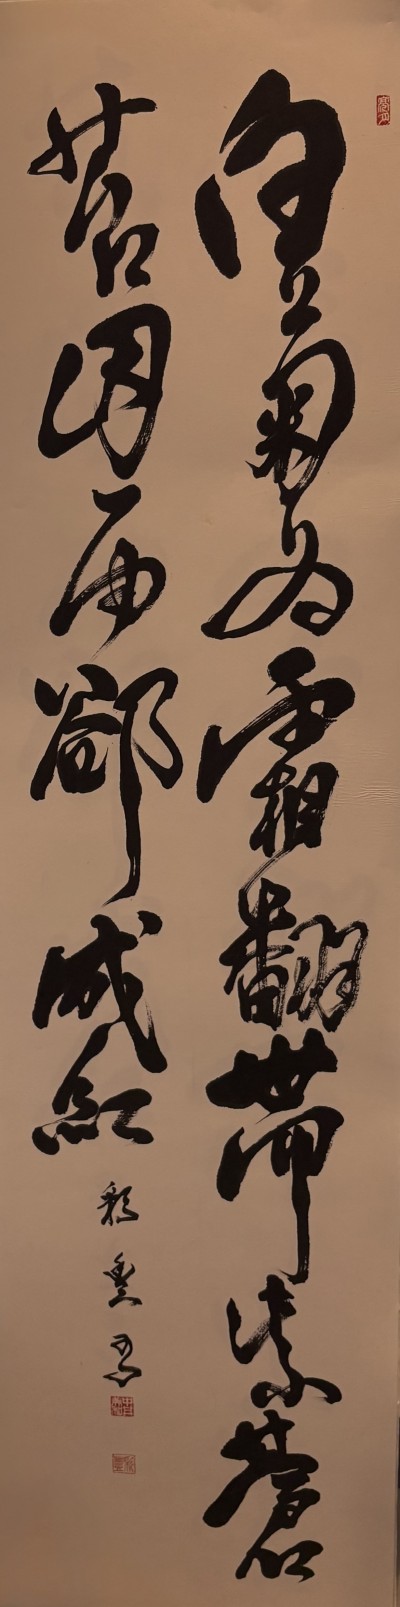 白菊為霜翻帶紫蒼
苔因雨卻成紅